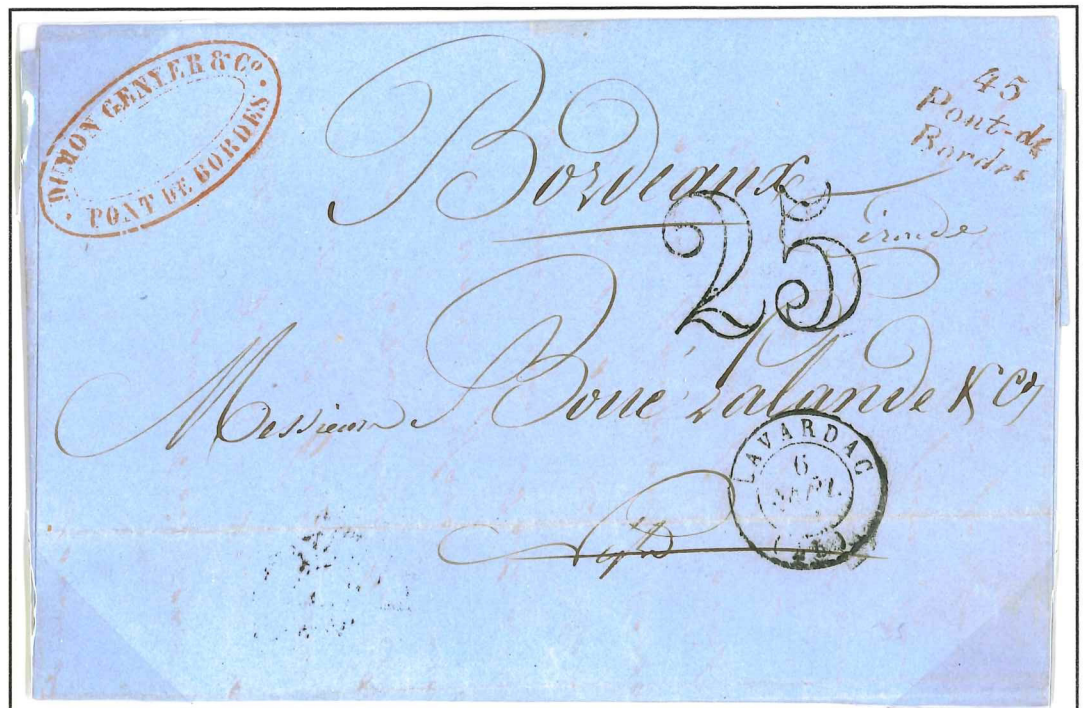 DUMON GENYER & Cº
PONT DE BORDES
45
Pont-de
Bordes
Bordeaux
Gironde
25
Messieurs Boué Lalande & Cie
LAVARDAC
6
SEPT.